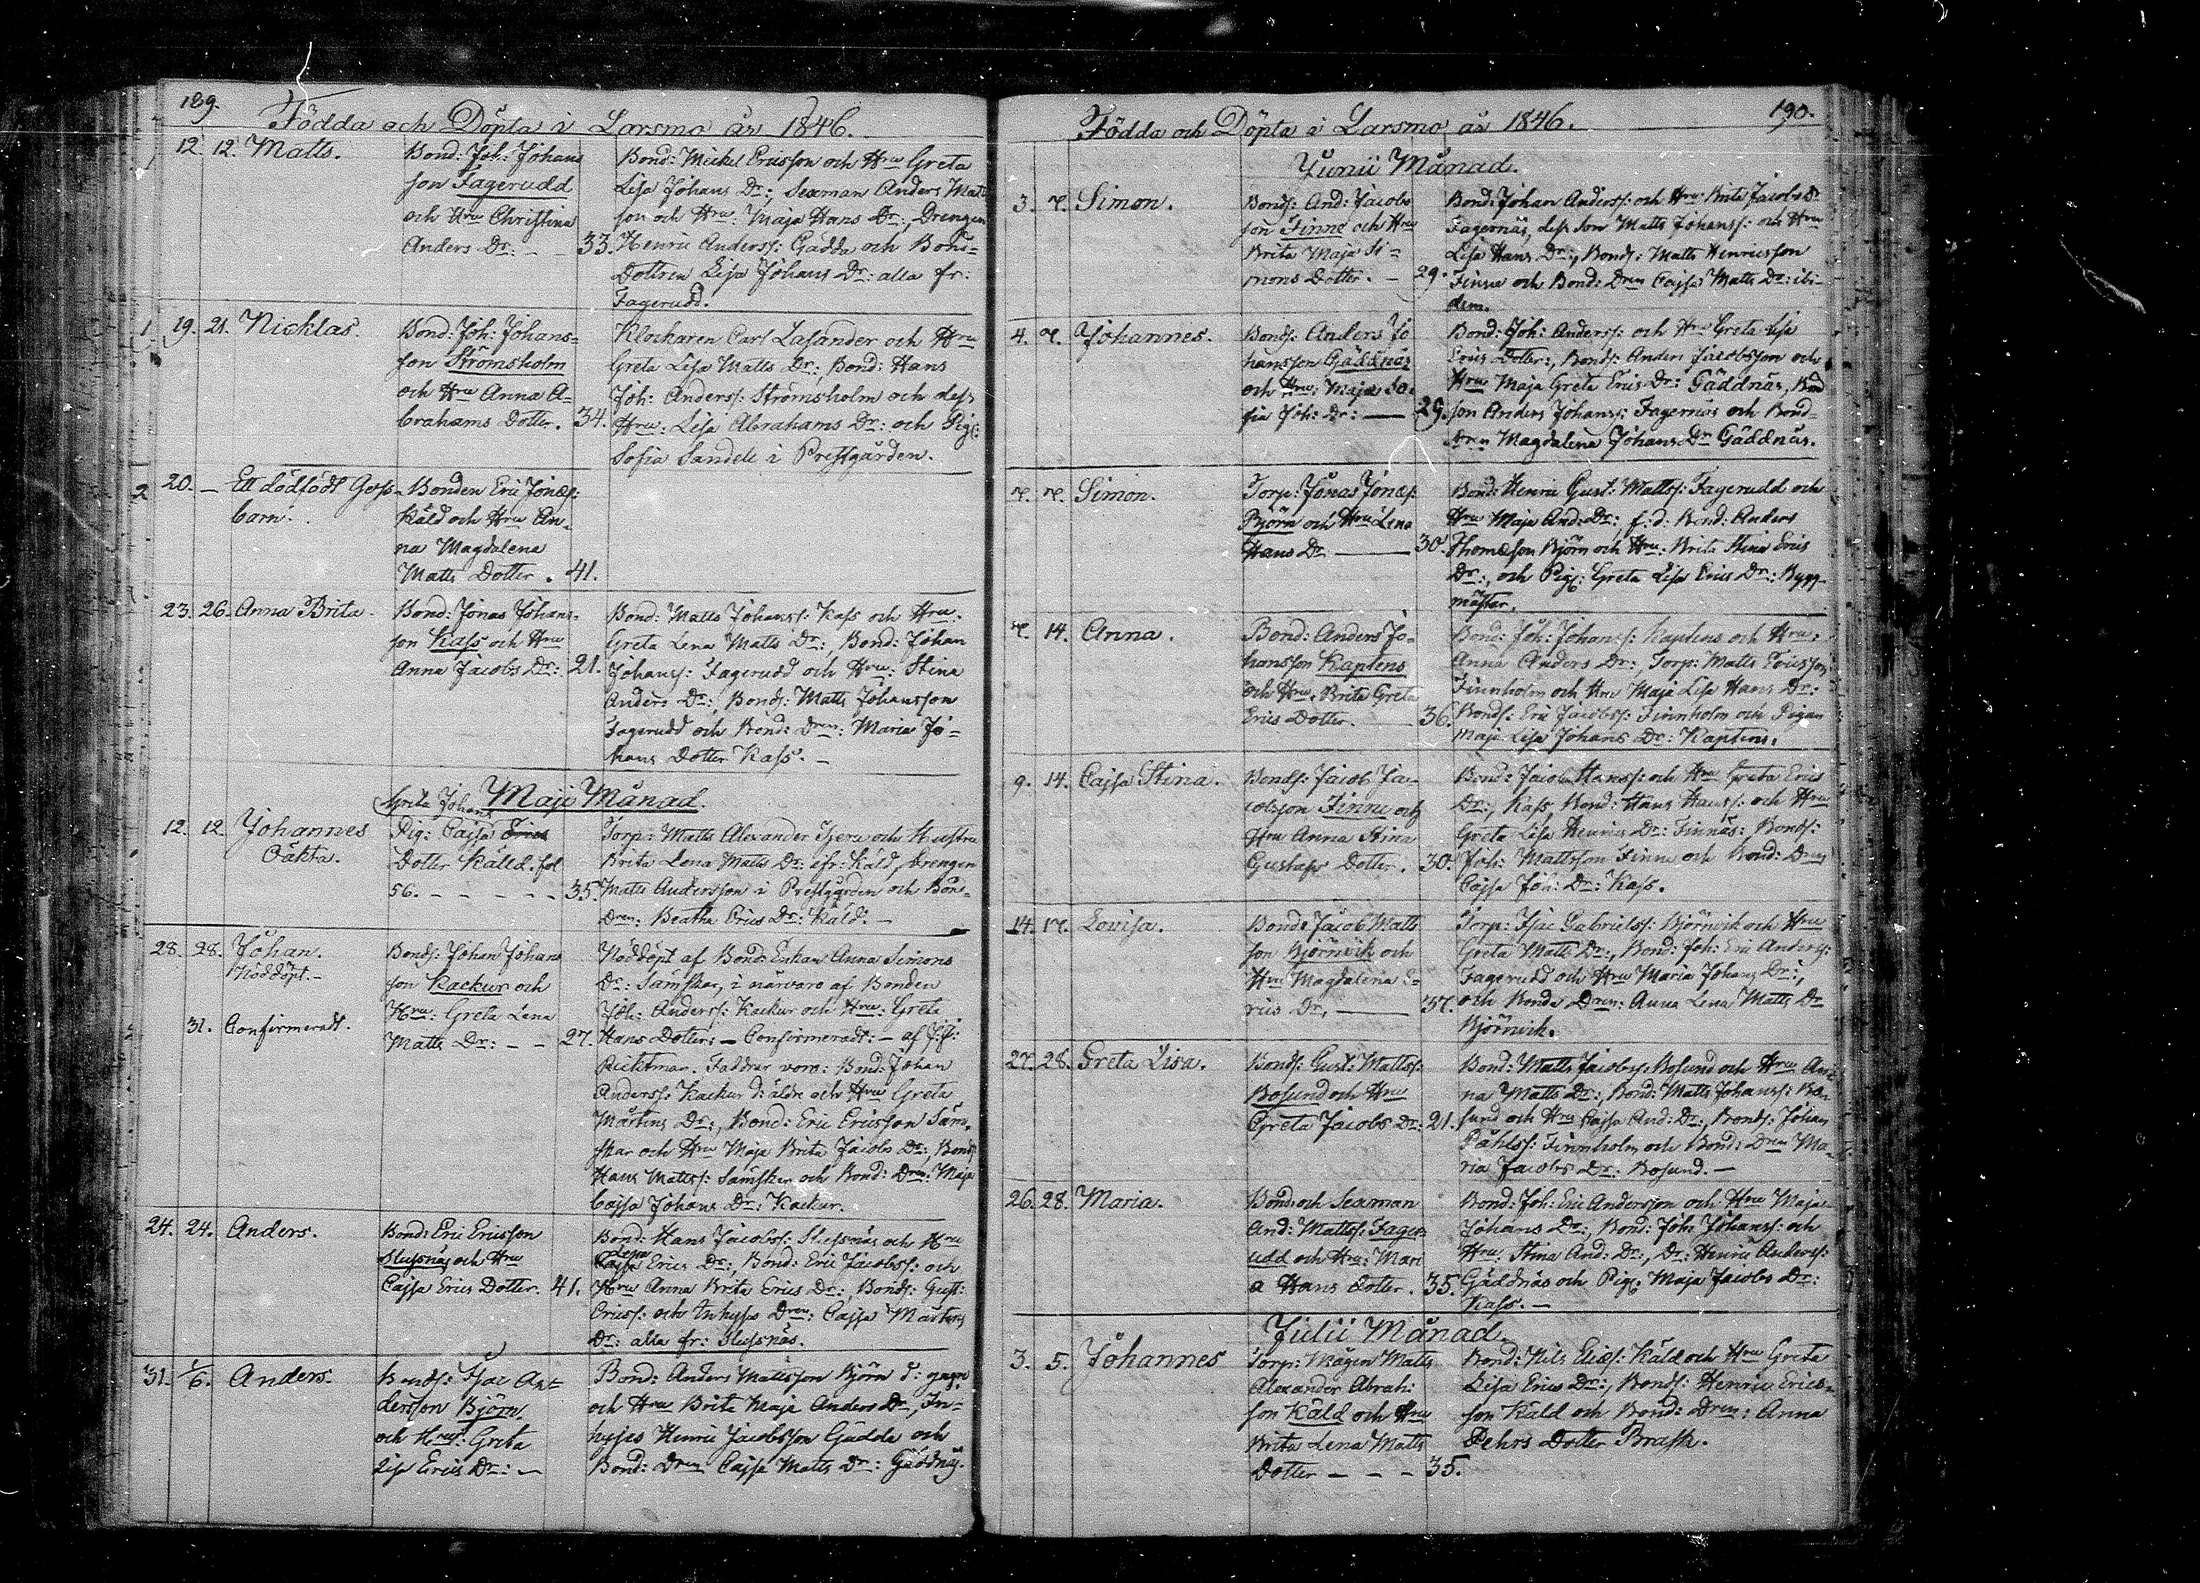 189.
Födda och Döpta i Larsmo år 1846.
12. 12. Matts.
Bond: Joh: Johans
son Fagerudd
och Hru Christina
Anders Dr: - - 33.
Bond: Mickel Ericsson och Hru Greta
Lisa Johans Dr:, Seaman Anders Matts
son och Hru: Maja Hans Dr:, Drengen
Henric Anderss: Gädda och Bond-
Dottren Lisa Johans Dr: alla fr:
Fagerudd.
1. 19. 21. Nicklas.
Bond: Joh: Johans-
son Strömsholm
och Hru Anna A-
brahams Dotter. 34.
Klockaren Carl Lasander och Hru
Greta Lisa Matts Dr:, Bond: Hans
Joh: Anderss: Strömsholm och dess
Hru: Lisa Abrahams Dr: och Pig:
Sofia Sandell i Prestgården.
2 20. - Ett dödfödt Goss-
barn.
Bonden Eric Jonæs:
Käld och Hru An-
na Magdalena
Matts Dotter. 41.
23. 26. Anna Brita.
Bond: Jonas Johans-
son Kass och Hru
Anna Jacobs Dr: 21.
Bond: Matts Johanss: Kass och Hru:
Greta Lena Matts Dr:, Bond: Johan
Johanss: Fagerudd och Hru: Stina
Anders Dr:, Bonds: Matts Johansson
Fagerudd och Bond: Dren: Maria Jo-
hans Dotter Kass. -
Maji Månad.
12. 12. Johannes
Oäkta.
Greta Johans
Pig: Cajsa Erics
Dotter Källd. fol
56. - - - - - 35.
Torp: Matts Alexander Tjeru och Hustru
Brita Lena Matts Dr: ifr: Käld, drengen
Matts Andersson i Prestgården och Bon-
Dren: Beatha Erics Dr: Käld. -
28. 28. Johan.
Nöddöpt. -
31. Confirmeradt.
Bonds: Johan Johans
son Kackur och
Hru: Greta Lena
Matts Dr: - - 27.
Nöddöpt af Bond: Enkan Anna Simons
Dr: Sämskar, i närvaro af Bonden
Joh: Anderss: Kackur och Hru: Greta
Hans Dotter: - Confirmeradt: - af
Faddrar voro: Bond: Johan
Anderss: Kackur d: äldre och Hru Greta
Mårtens Dr:, Bond: Eric Ericsson Säm-
skar och Hru Maja Brita Jacobs Dr:, Bonds:
Hans Mattss: Sämskar och Bond: Dren: Maja
Cajsa Johans Dr: Kackur.
24. 24. Anders.
Bond: Eric Ericsson
Slussnäs och Hru
Cajsa Erics Dotter. 41.
Bond: Hans Jacobss: Slussnäs och Hru
Lisa
Cajsa Erics Dr:, Bond: Eric Jacobss: och
Hru Anna Brita Erics Dr:, Bonds: Gust:
Ericss: och Inhyses Dren: Cajsa Mårtens
Dr: alla fr: Slussnäs.
31. 1/6. Anders.
Bonds: Isac An-
dersson Björn
och Hru: Greta
Lisa Erics Dr: -
Bond: Anders Mattsson Björn d: yngre
och Hru Brita Maja Anders Dr:, In-
hyses Henric Jacobsson Gädda och
Bond: Dren Cajsa Matts Dr: Gäddnäs.
190.
Födda och Döpta i Larsmo år 1846.
Junii Månad.
3. 7. Simon.
Bonds: And: Jacobs
son Finne och Hru
Brita Maja Si-
mons Dotter. - 29.
Bond: Johan Anderss: och Hru Brita Jacobs Dr
Fagernäs, Matts Johanss: och Hru
Lisa Hans Dr:, Bonds: Matts Henricsson
Finne och Bond: Dren Cajsa Matts Dr: ibi-
dem.
4. 7. Johannes.
Bonds: Anders Jo
hansson Gäddnäs
och Hru: Maja So-
fia Joh: Dr: — 29.
Bond: Joh: Anderss: och Hru Greta Lisa
Erics Dotter:, Bonds: Anders Jacobsson och
Hru Maja Greta Erics Dr: Gäddnäs, Bond
son Anders Johanss: Fagernäs och Bond-
Dren Magdalena Johans Dr Gäddnäs.
7. 7. Simon.
Torp: Jonas Jonæs:
Björn och Hru Lena
Hans Dr — 30.
Bond: Henric Gust: Mattss: Fagerudd och
Hru Maja And: Dr: f: d: Bond: Anders
Thomæson Björn och Hru: Brita Stina Erics
Dr:, och Pig: Greta Lisa Erics Dr: Bygg-
mästar.
7. 14. Anna.
Bond: Anders Jo-
hansson Kaptens
och Hru. Brita Greta
Erics Dotter. - 36.
Bond: Joh: Johanss: Kaptens och Hru:
Anna Anders Dr:, Torp: Matts Ericsson
Finnholm och Hru Maja Lisa Hans Dr:
Bonds: Eric Jacobss: Finnholm och Pigan
Maja Lisa Johans Dr: Kaptens.
9. 14. Cajsa Stina.
Bonds: Jacob Ja-
cobsson Finne och
Hru Anna Stina
Gustafs Dotter. 30.
Bond: Jacob Hanss: och Hru Greta Erics
Dr:, Kass Bond: Hans Hanss: och Hru
Greta Lisa Henrics Dr: Finnäs: Bonds:
Joh: Mattsson Finne och Bond: Dren
Cajsa Joh: Dr: Kass.
14. 17. Lovisa.
Bond: Jacob Matts
son Björnvik och
Hru Magdalena E-
rics Dr, — 37.
Torp: Isac Gabrielss: Björnvik och Hru
Greta Matts Dr:, Bond: Joh: Eric Anderss:
Fagerudd och Hru Maria Johans Dr:,
och Bonde Dren: Anna Lena Matts Dr
Björnvik.
27. 28. Greta Lisa.
Bonds: Gust: Mattss:
Bosund och Hru
Greta Jacobs Dr: 21.
Bond: Matts Jacobss: Bosund och Hru An-
na Matts Dr:, Bond: Matts Johanss: Bo-
sund och Hru Cajsa And: Dr:, Bonds: Johan
Påhlss: Finnholm och Bond: Dren Ma-
ria Jacobs Dr: Bosund. -
26. 28. Maria.
Bond: och Seaman
And: Mattss: Fager-
udd och Hru: Mari
a Hans Dotter. 35.
Bond: Joh: Eric Andersson och Hru Maja
Johans Dr:, Bond: Joh: Johanss: och
Hru. Stina And: Dr:, Dr: Henric Anderss:
Gäddnäs och Pig: Maja Jacobs Dr:
Kass. -
Julii Månad.
3. 5. Johannes
Torp: Mågen Matts
Alexander Abrah:
son Käld och Hru
Brita Lena Matts
Dotter - - - 35.
Bond: Nils Eliæs: Käld och Hru Greta
Lisa Erics Dr:, Bonds: Henric Erics-
son Käld och Bond: Dren: Anna
Pehrs Dotter Brask.